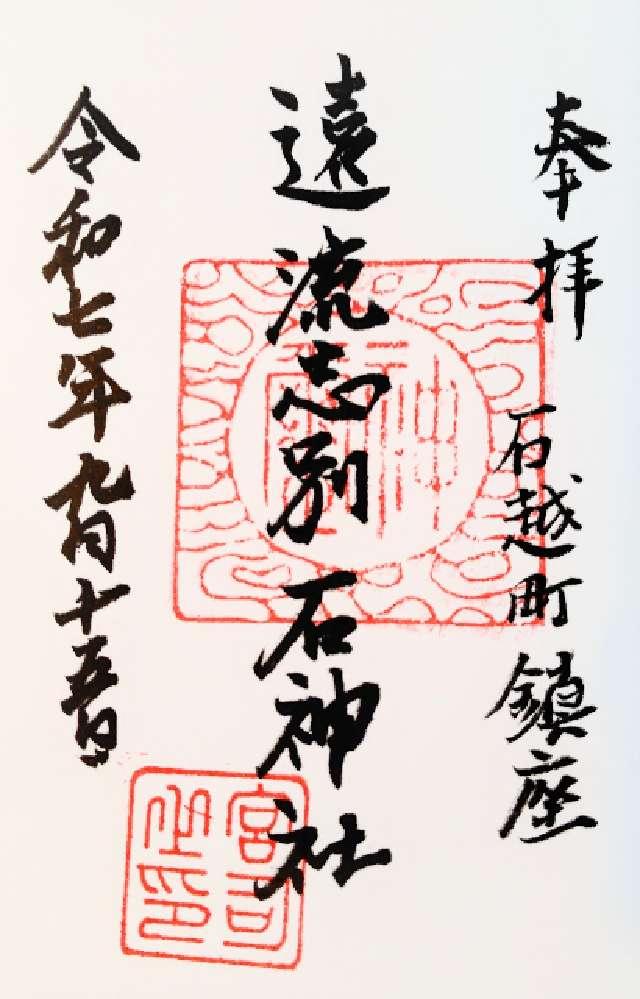 奉拝 石越町鎮座
遠流志別石神社
令和七年九月十五日
宮司之印